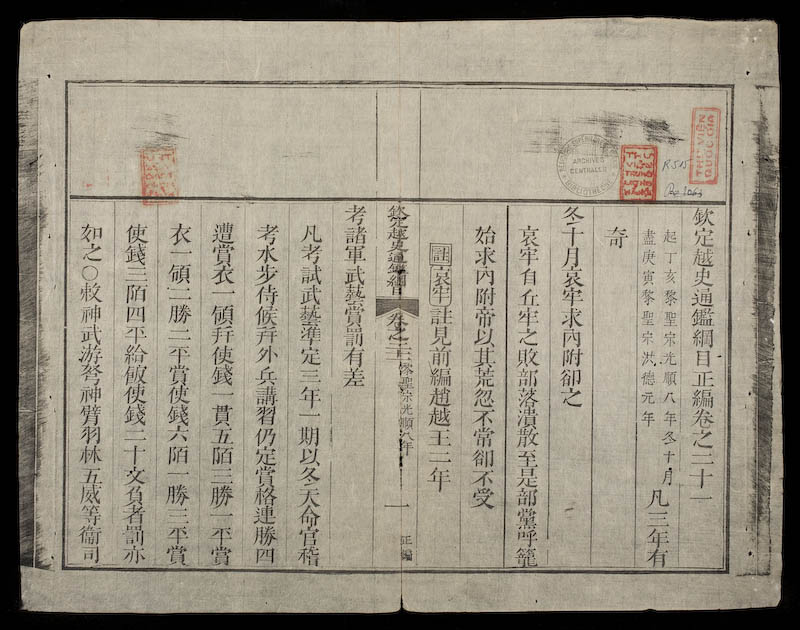 THƯ VIỆN
QUỐC GIA
R 515
ARCHIVES
CENTRALES
欽定越史通鑑綱目正編卷之二十一
起丁亥黎聖宗光順八年冬十月
盡庚寅黎聖宗洪德元年
凡三年有
奇
冬十月哀牢求內附卻之
哀牢自丘牢之敗部落潰散至是部黨呼籠
始求內附帝以其荒忽不常卻不受
註哀牢註見前編趙越王二年
欽定越史通鑑綱目
卷之二十一
黎聖宗光順八年
一
正編
考諸軍武藝賞罰有差
凡考試武藝準定三年一期以冬天命官稽
考水步侍候幷外兵講習仍定賞格連勝四
遭賞衣一領幷使錢一貫五陌三勝一平賞
衣一領二勝二平賞使錢六陌一勝三平賞
使錢三陌四平給飯使錢二十文負者罰亦
如之○敕神武游弩神臂羽林五威等衞司